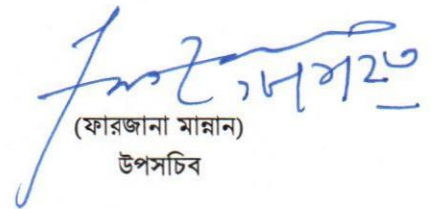 (ফারজানা মান্নান)
উপসচিব